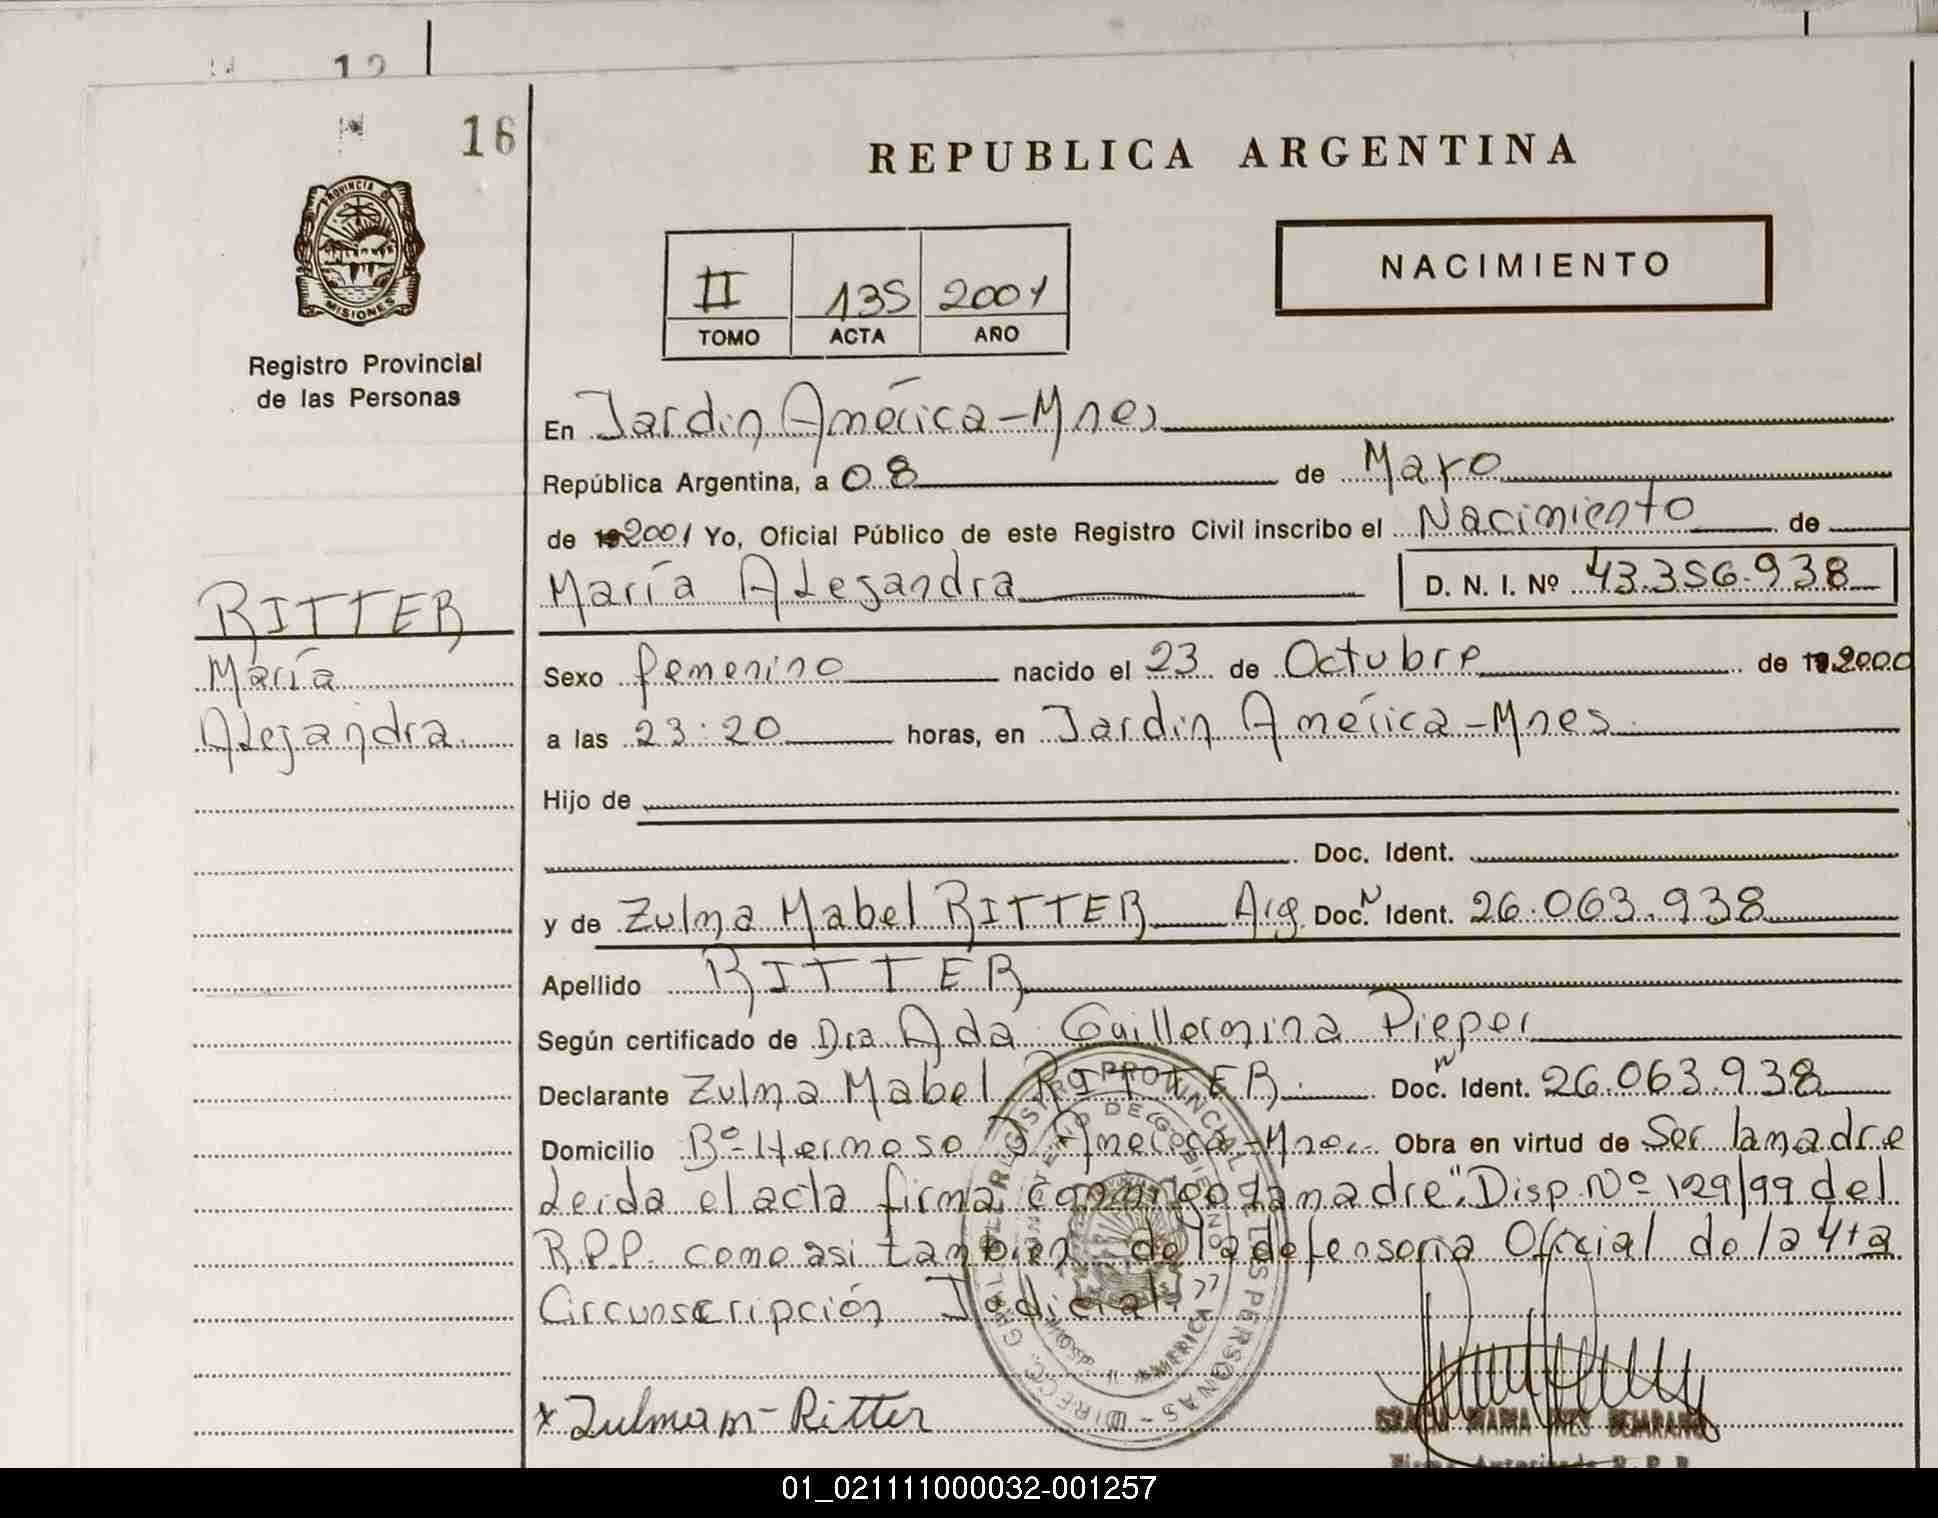 12
16
REPUBLICA ARGENTINA
PROVINCIA DE
MISIONES
NACIMIENTO
II 135 2001
TOMO ACTA AÑO
Registro Provincial
de las Personas
En Jardin América - Mnes
República Argentina, a 08 de Mayo
de 192001 Yo, Oficial Público de este Registro Civil inscribo el Nacimiento de
María Alejandra D. N. I. Nº 43.356.938
RITTER
María
Alejandra.
Sexo femenino nacido el 23 de Octubre de 192000
a las 23:20 horas, en Jardin América - Mnes.
Hijo de
Doc. Ident.
y de Zulma Mabel RITTER Arg. Doc. N Ident. 26.063.938
Apellido RITTER
Según certificado de Dra Ada Guillermina Pieper
Declarante Zulma Mabel RITTER. Doc. N Ident. 26.063.938
Domicilio Bº Hermoso J América - Mnes. Obra en virtud de Ser la madre
Leida el acta firma conmigo la madre", Disp. Nº 129/99 del
R.P.P. como asi tambien de la defensoria Oficial de la 4ta
Circunscripción Judicial.
DIRECC. GRAL. DEL REGISTRO PROVINCIAL DE LAS PERSONAS
MINISTERIO DE GOBIERNO
AMERICA
x Zulma M- Ritter
MARIA INES
01_021111000032-001257